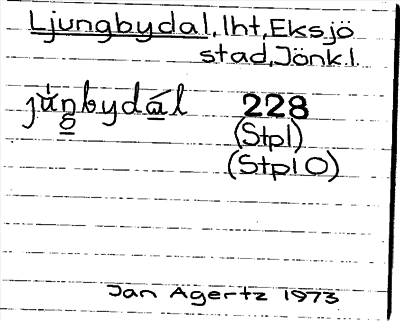 Ljungbydal, lht, Eksjö
stad, Jönk.l.
jùn̥bydál 228
(Stpl)
(Stpl O)
Jan Agertz 1973